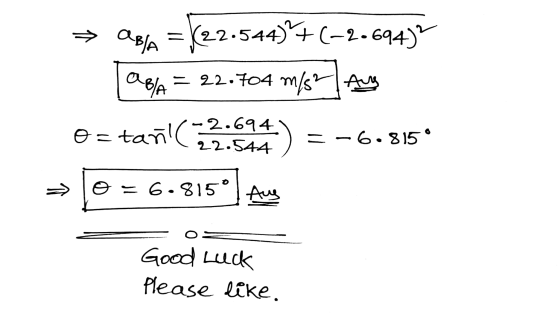 ⇒ a_B/A = √((22.544)² + (-2.694)²)
a_B/A = 22.704 m/s² Ans
θ = tan⁻¹(-2.694/22.544) = -6.815°
⇒ θ = 6.815° Ans
Good Luck
Please like.